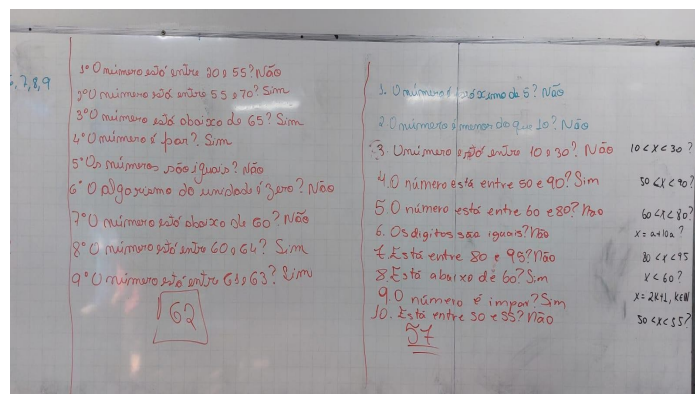 5,7,8,9
1º O número está entre 20 e 55? Não
2º O número está entre 55 e 70? Sim
3º O número está abaixo de 65? Sim
4º O número é par? Sim
5º Os números são iguais? Não
6º O algarismo da unidade é zero? Não
7º O número está abaixo de 60? Não
8º O número está entre 60 e 64? Sim
9º O número está entre 61 e 63? Sim
62
1. O número é próximo de 5? Não
2. O número é menor do que 10? Não
3. O número está entre 10 e 30? Não 10 < x < 30?
4. O número está entre 50 e 90? Sim 50 < x < 90?
5. O número está entre 60 e 80? Não 60 < x < 80?
6. Os digitos são iguais? Não x = a+10a?
7. Está entre 80 e 95? Não 80 < x < 95
8. Está abaixo de 60? Sim x < 60?
9. O número é impar? Sim x = 2k+1, k∈N
10. Está entre 50 e 55? Não 50 < x < 55?
57